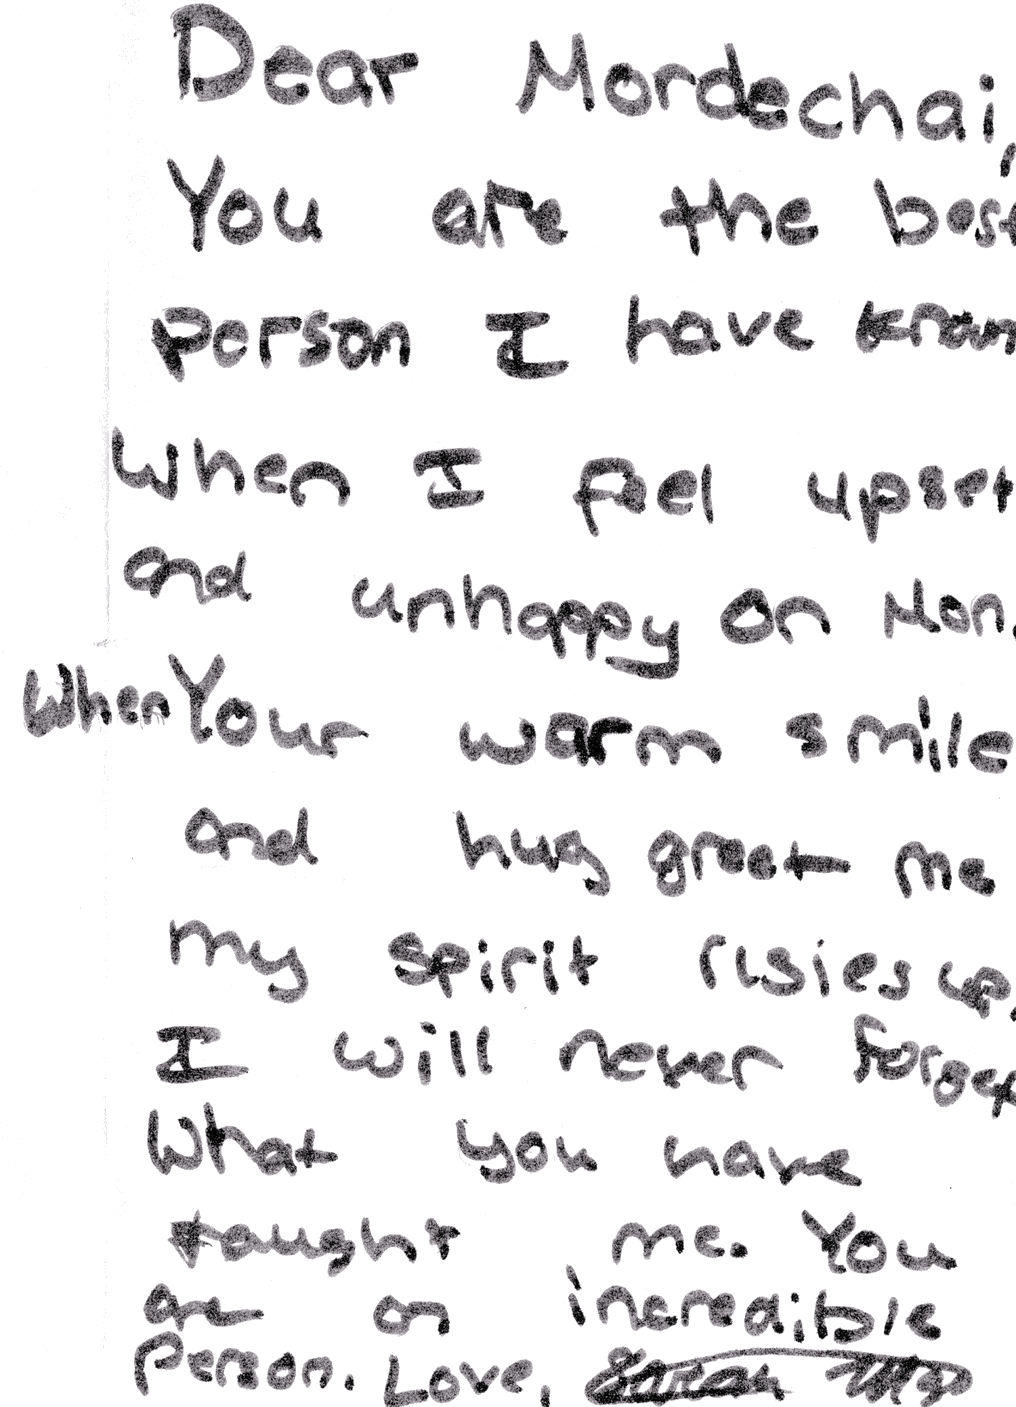 Dear Mordechai,
You are the best
person I have known
When I feel upset
and unhappy on Mon.
When Your warm smile
and hug greet me
my spirit risies up.
I will never forget
What you have
taught me. You
are an incredible
Person. Love, Sarah